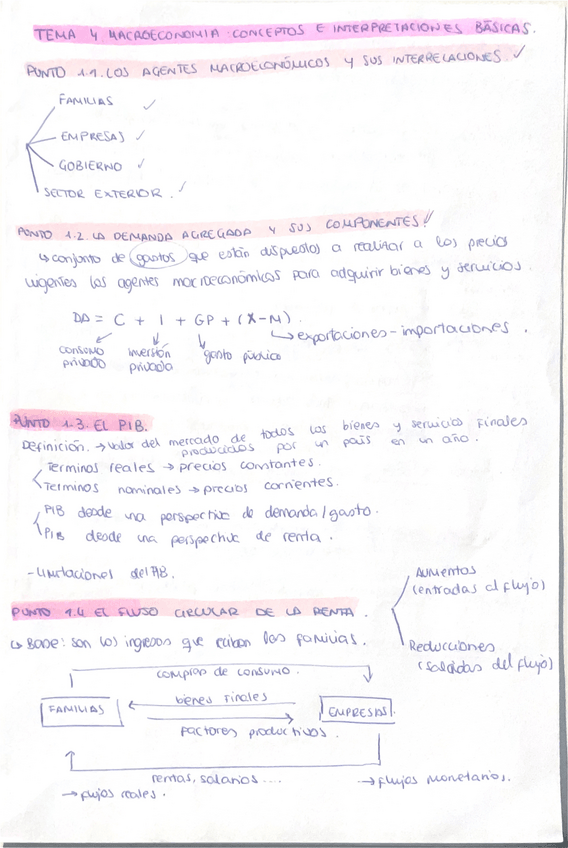 TEMA 4 MACROECONOMIA CONCEPTOS E INTERPRETACIONES BÁSICAS.
PUNTO 1.1. LOS AGENTES MACROECONÓMICOS Y SUS INTERRELACIONES. ✓
FAMILIAS ✓
EMPRESAS ✓
GOBIERNO ✓
SECTOR EXTERIOR. ✓
PUNTO 1.2. LA DEMANDA AGREGADA Y SUS COMPONENTES. ✓
↳ conjunto de gastos que están dispuestos a realizar a los precios
vigentes los agentes macroeconómicos para adquirir bienes y servicios.
DA = C + I + GP + (X-M).
↳ exportaciones - importaciones.
consumo privado
inversión privada
gasto público
PUNTO 1.3. EL PIB.
Definición. → valor del mercado de todos los bienes y servicios finales
producidos por un país en un año.
Terminos reales → precios constantes.
Terminos nominales → precios corrientes.
PIB desde una perspectiva de demanda/gasto.
PIB desde una perspectiva de renta.
- Limitaciones del PIB.
Aumentos
(entradas al flujo)
PUNTO 1.4 EL FLUJO CIRCULAR DE LA RENTA.
↳ Base: son los ingresos que reciben las familias.
Reducciones
(salidas del flujo)
compras de consumo.
FAMILIAS
bienes finales
EMPRESAS.
Factores productivos.
rentas, salarios ....
→ flujos monetarios.
→ flujos reales.